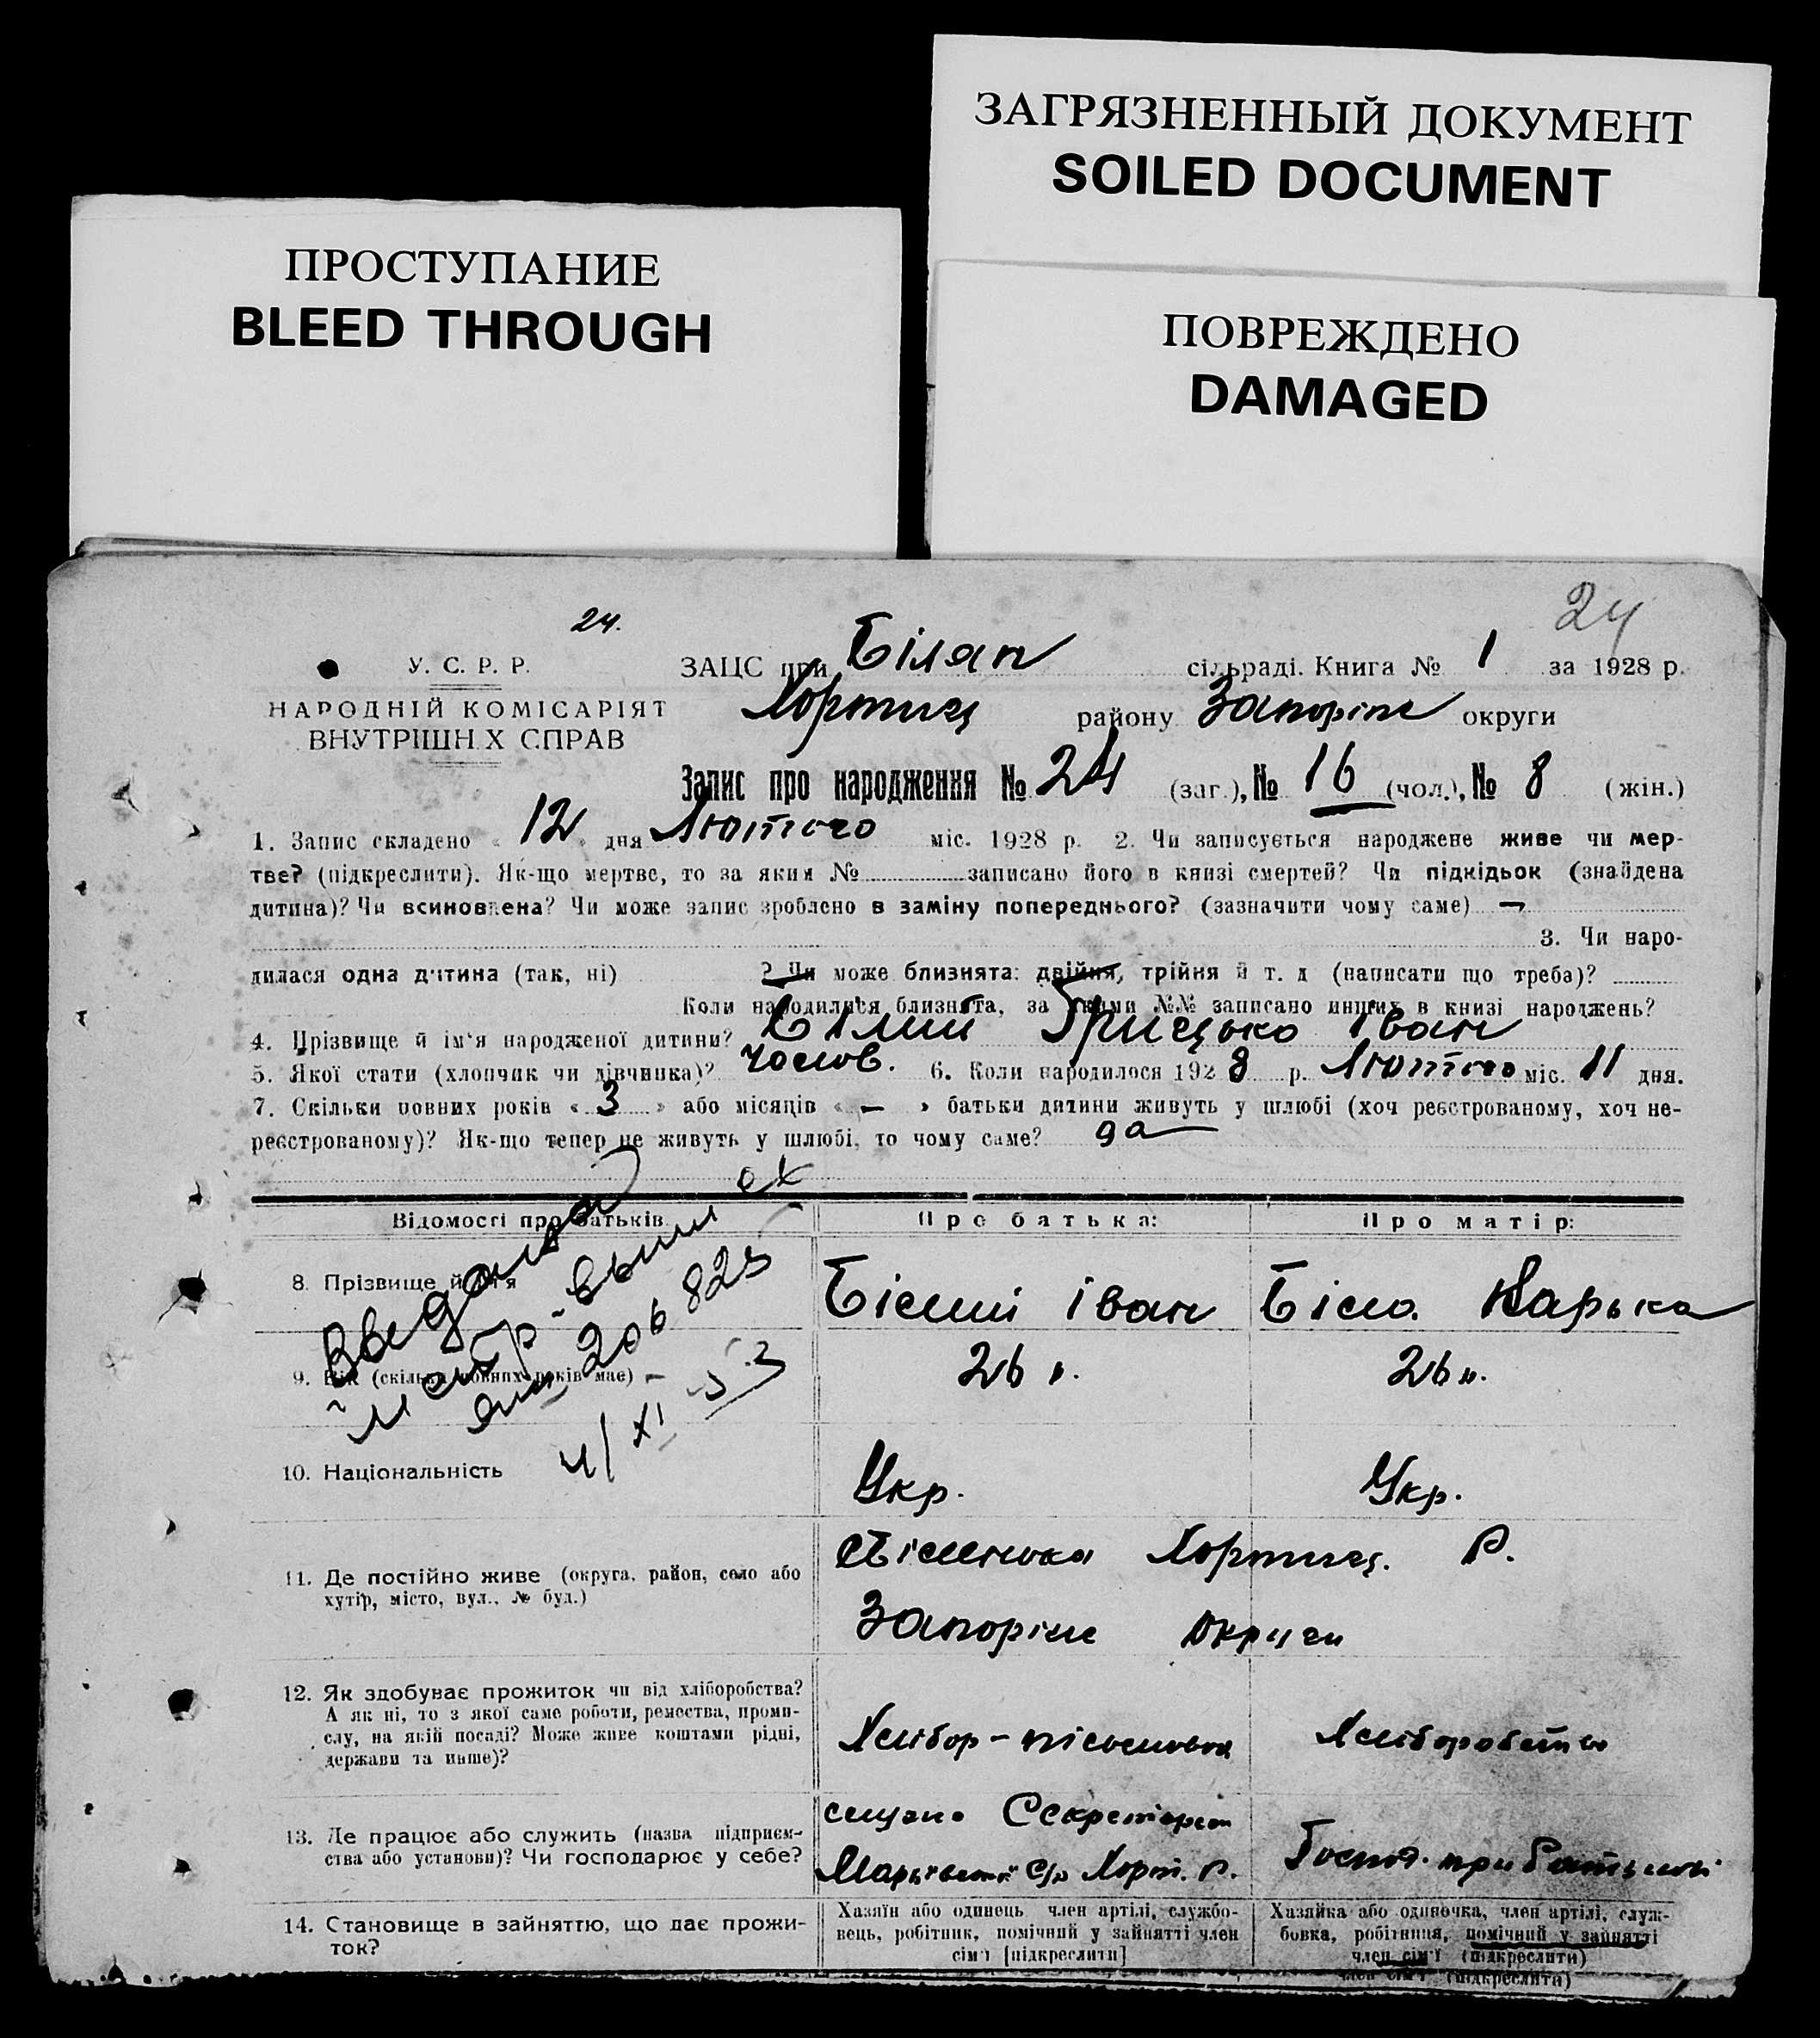 ЗАГРЯЗНЕННЫЙ ДОКУМЕНТ
SOILED DOCUMENT
ПРОСТУПАНИЕ
BLEED THROUGH
ПОВРЕЖДЕНО
DAMAGED
24.
24
У. С. Р. Р.
НАРОДНІЙ КОМІСАРІЯТ
ВНУТРІШНІХ СПРАВ
ЗАЦС при Білян сільраді. Книга № 1 за 1928 р.
Хортиц району Запоріж округи
Запис про народження № 24 (заг.), № 16 (чол.), № 8 (жін.)
1. Запис складено « 12 » дня Лютого міс. 1928 р. 2. Чи записується народжене живе чи мер-
тве? (підкреслити). Як-що мертве, то за яким № записано його в книзі смертей? Чи підкідьок (знайдена
дитина)? Чи всиновлена? Чи може запис зроблено в заміну попереднього? (зазначити чому саме) —
3. Чи наро-
дилася одна дитина (так, ні) ? Чи може близнята: двійня, трійня й т. д (написати що треба)?
Коли народилися близнята, за якими №№ записано инших в книзі народжень?
4. Прізвище й ім'я народженої дитини? Білий Грицько Іван
5. Якої стати (хлопчик чи дівчинка)? Чолов. 6. Коли народилося 1928 р. Лютого міс. 11 дня.
7. Скільки повних років « 3 » або місяців « — » батьки дитини живуть у шлюбі (хоч реєстрованому, хоч не-
реєстрованому)? Як-що тепер не живуть у шлюбі, то чому саме? да
Відомості про батьків Про батька: Про матір:
8. Прізвище й ім'я Білий Іван Біла Марька
9. Вік (скільки повних років має) 26 26
206825
4/XI 53
10. Національність Укр. Укр.
11. Де постійно живе (округа, район, село або
хутір, місто, вул., № буд.)
Хортиц. Р.
Запоріж округи
12. Як здобуває прожиток чи від хліборобства?
А як ні, то з якої саме роботи, ремества, проми-
слу, на якій посаді? Може живе коштами рідні,
держави та инше)?
Хлібор- Хліборобство
13. Де працює або служить (назва підприєм-
ства або установи)? Чи господарює у себе?
Секретарем
С/р Хорт. Р.
Госпо. при
14. Становище в зайняттю, що дає прожи-
ток?
Хазяїн або одинець член артілі, службо-
вець, робітник, помічний у зайнятті член
сім'ї [підкреслити]
Хазяйка або одиночка, член артілі, служ-
бовка, робітниця, помічний у зайнятті
член сім'ї (підкреслити)
член сім'ї (підкреслити)